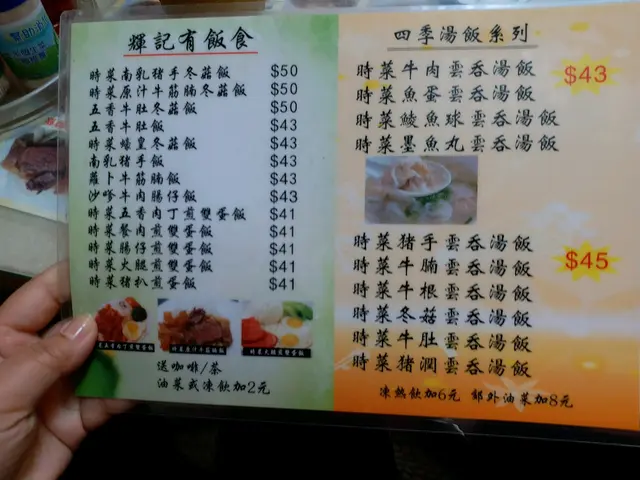 輝記有飯食
時菜南乳豬手冬菇飯 $50
時菜原汁牛筋腩冬菇飯 $50
五香牛肚冬菇飯 $50
五香牛肚飯 $43
時菜蠔皇冬菇飯 $43
南乳豬手飯 $43
蘿卜牛筋腩飯 $43
沙嗲牛肉腸仔飯 $43
時菜五香肉丁煎雙蛋飯 $41
時菜餐肉煎雙蛋飯 $41
時菜腸仔煎雙蛋飯 $41
時菜火腿煎雙蛋飯 $41
時菜豬扒煎雙蛋飯 $41
送咖啡/茶
油菜或凍飲加2元
四季湯飯系列
時菜牛肉雲吞湯飯
$43
時菜魚蛋雲吞湯飯
時菜鯪魚球雲吞湯飯
時菜墨魚丸雲吞湯飯
時菜豬手雲吞湯飯
時菜牛腩雲吞湯飯
$45
時菜牛根雲吞湯飯
時菜冬菇雲吞湯飯
時菜牛肚雲吞湯飯
時菜豬潤雲吞湯飯
凍熱飲加6元 郊外油菜加8元